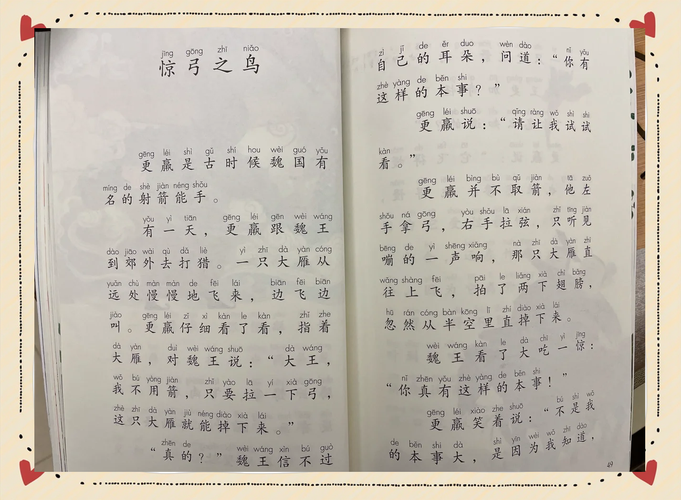 jīng gōng zhī niǎo
惊弓之鸟
gēng léi shì gǔ shí hou wèi guó yǒu
更羸是古时候魏国有
míng de shè jiàn néng shǒu
名的射箭能手。
yǒu yì tiān gēng léi gēn wèi wáng
有一天，更羸跟魏王
dào jiāo wài qù dǎ liè yì zhī dà yàn cóng
到郊外去打猎。一只大雁从
yuǎn chù màn màn de fēi lái biān fēi biān
远处慢慢地飞来，边飞边
jiào gēng léi zǐ xì kàn le kàn zhǐ zhe
叫。更羸仔细看了看，指着
dà yàn duì wèi wáng shuō dà wáng
大雁，对魏王说：“大王，
wǒ bú yòng jiàn zhǐ yào lā yí xià gōng
我不用箭，只要拉一下弓，
zhè zhī dà yàn jiù néng diào xià lái
这只大雁就能掉下来。”
zhēn de wèi wáng xìn bú guò
“真的？”魏王信不过
zì jǐ de ěr duo wèn dào nǐ yǒu
自己的耳朵，问道：“你有
zhè yàng de běn shi
这样的本事？”
gēng léi shuō qǐng ràng wǒ shì shi
更羸说：“请让我试试
kàn
看。”
gēng léi bìng bù qǔ jiàn tā zuǒ
更羸并不取箭，他左
shǒu ná gōng yòu shǒu lā xián zhǐ tīng jiàn
手拿弓，右手拉弦，只听见
bēng de yì shēng xiǎng nà zhī dà yàn zhí
嘣的一声响，那只大雁直
wǎng shàng fēi pāi le liǎng xià chì bǎng
往上飞，拍了两下翅膀，
hū rán cóng bàn kōng lǐ zhí diào xià lái
忽然从半空里直掉下来。
wèi wáng kàn le dà chī yì jīng
魏王看了大吃一惊：
nǐ zhēn yǒu zhè yàng de běn shi
“你真有这样的本事！”
gēng léi xiào zhe shuō bú shì wǒ
更羸笑着说：“不是我
de běn shi dà shì yīn wèi wǒ zhī dào
的本事大，是因为我知道，
49